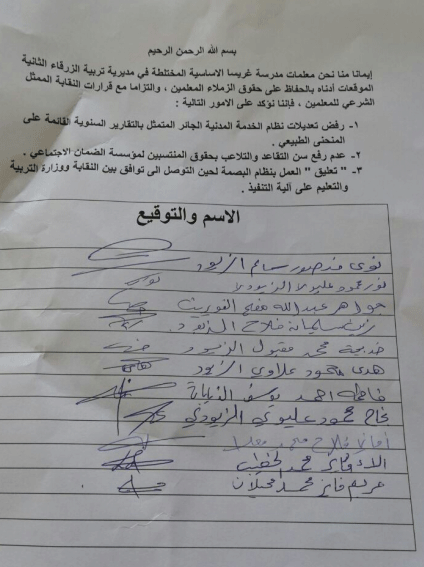 بسم الله الرحمن الرحيم
إيمانا منا نحن معلمات مدرسة غريسا الاساسية المختلطة في مديرية تربية الزرقاء الثانية
الموقعات أدناه بالحفاظ على حقوق الزملاء المعلمين ، والتزاما مع قرارات النقابة الممثل
الشرعي للمعلمين ، فإننا نؤكد على الامور التالية :
١- رفض تعديلات نظام الخدمة المدنية الجائر المتمثل بالتقارير السنوية القائمة على
المنحنى الطبيعي .
٢- عدم رفع سن التقاعد والتلاعب بحقوق المنتسبين لمؤسسة الضمان الاجتماعي .
٣- " تعليق " العمل بنظام البصمة لحين التوصل الى توافق بين النقابة ووزارة التربية
والتعليم على آلية التنفيذ .
الاسم والتوقيع
منصور سالم الزيود
محمود
جواهر عبدالله مفلح
فلاح الزيود
خديجة محمد مقبول الزيود
هدى محمود علاوي الزيود
فاطمة احمد يوسف
نجاح محمود
فلاح
الاء فايز محمد الخطيب
مريم فايز محمد